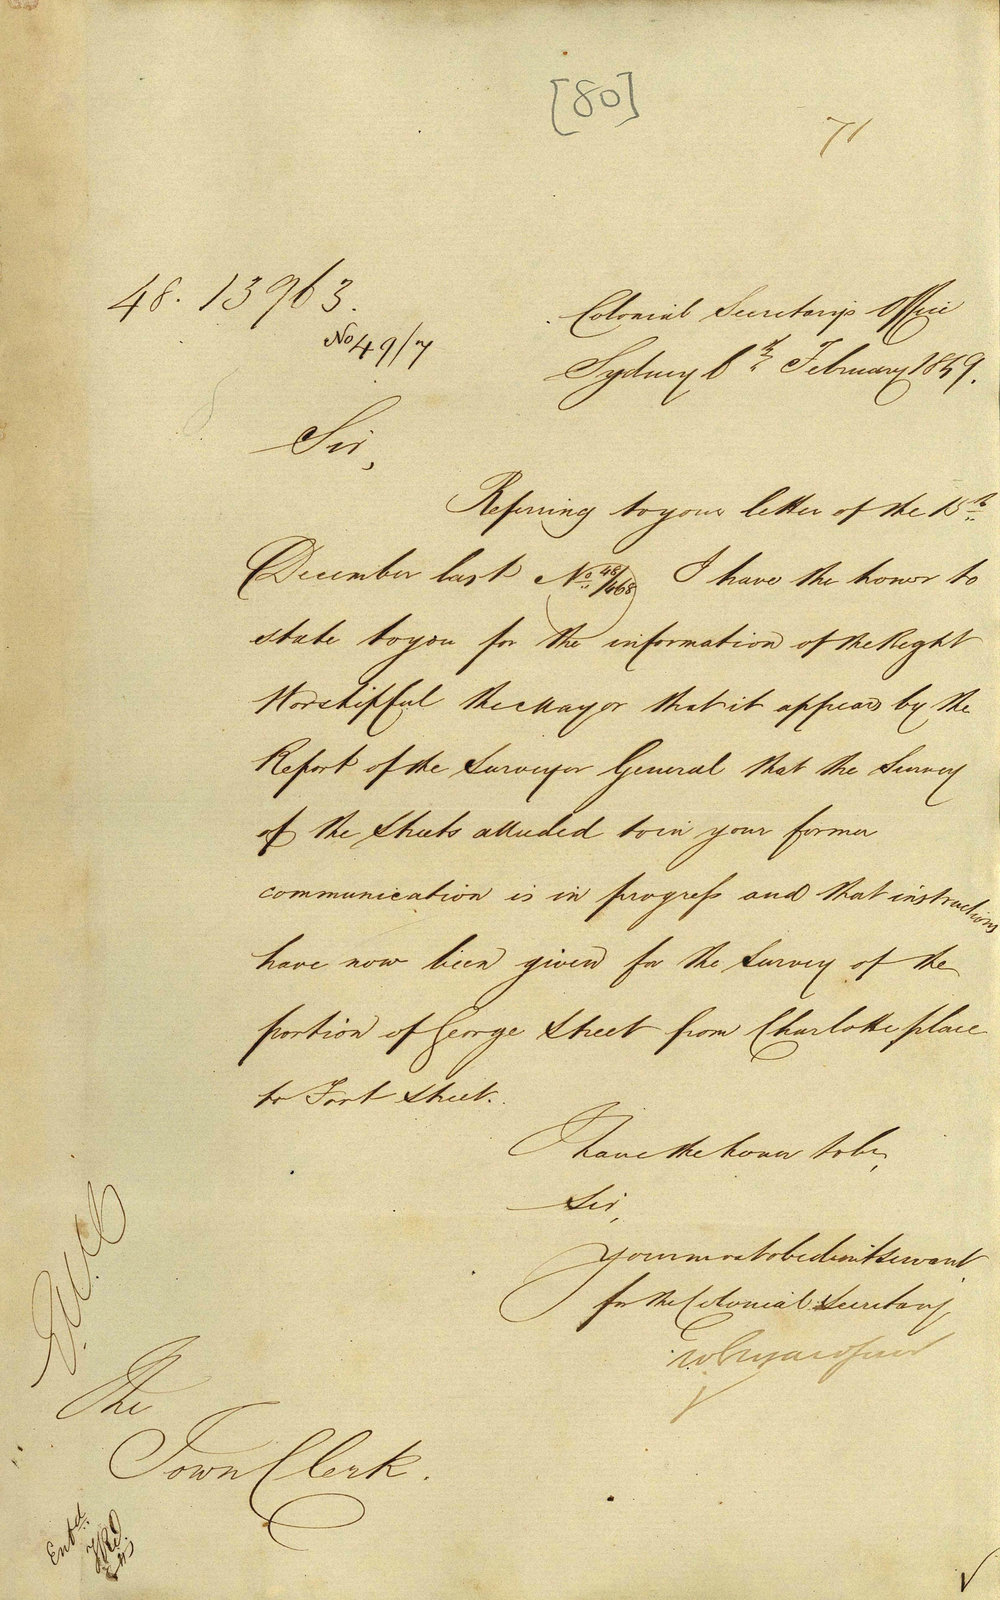 [80]
71
48.13963.
No 49/7
Colonial Secretary's Office
Sydney 6th February 1849.
Sir,
Referring to your letter of the 15th
December last No 48/468 I have the honor to
state to you for the information of the Right
Worshipful the Mayor that it appears by the
Report of the Surveyor General that the Survey
of the Streets alluded to in your former
communication is in progress and that instructions
have now been given for the Survey of the
portion of George Street from Charlotte place
to Fort Street.
I have the honor to be,
Sir,
Your most obedient servant
for the Colonial Secretary
The
Town Clerk.
Entd